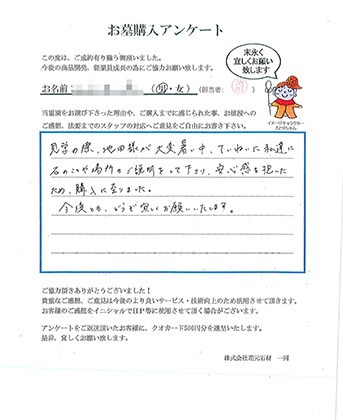 お墓購入アンケート
この度は、ご成約有り難う御座いました。
今後の商品開発、従業員成長の為にご協力お願い致します。
お名前
(男・女)
(担当者:
末永く
宜しくお願い
致します
イメージキャラクター
さとりちゃん
当霊園をお選び下さった理由や、ご購入までに感じられた事、お値段への
ご感想、法要までのスタッフの対応へご意見をご自由にお書き下さい。
見学の際、池田様が大変暑い中、ていねいに私達に
石のことや場所のご説明をして下さり、安心感を抱いた
ため、購入に至りました。
今後とも、どうぞ宜しくお願いいたします。
ご協力頂きありがとうございました!
貴重なご感想、ご意見は今後のより良いサービス・技術向上のため活用させて頂きます。
お客様のご感想をイニシャルでHP等に使用させて頂く場合がございます。
アンケートをご返送頂いたお客様に、クオカード500円分を進呈いたします。
是非、宜しくお願い致します。
株式会社花元石材 一同